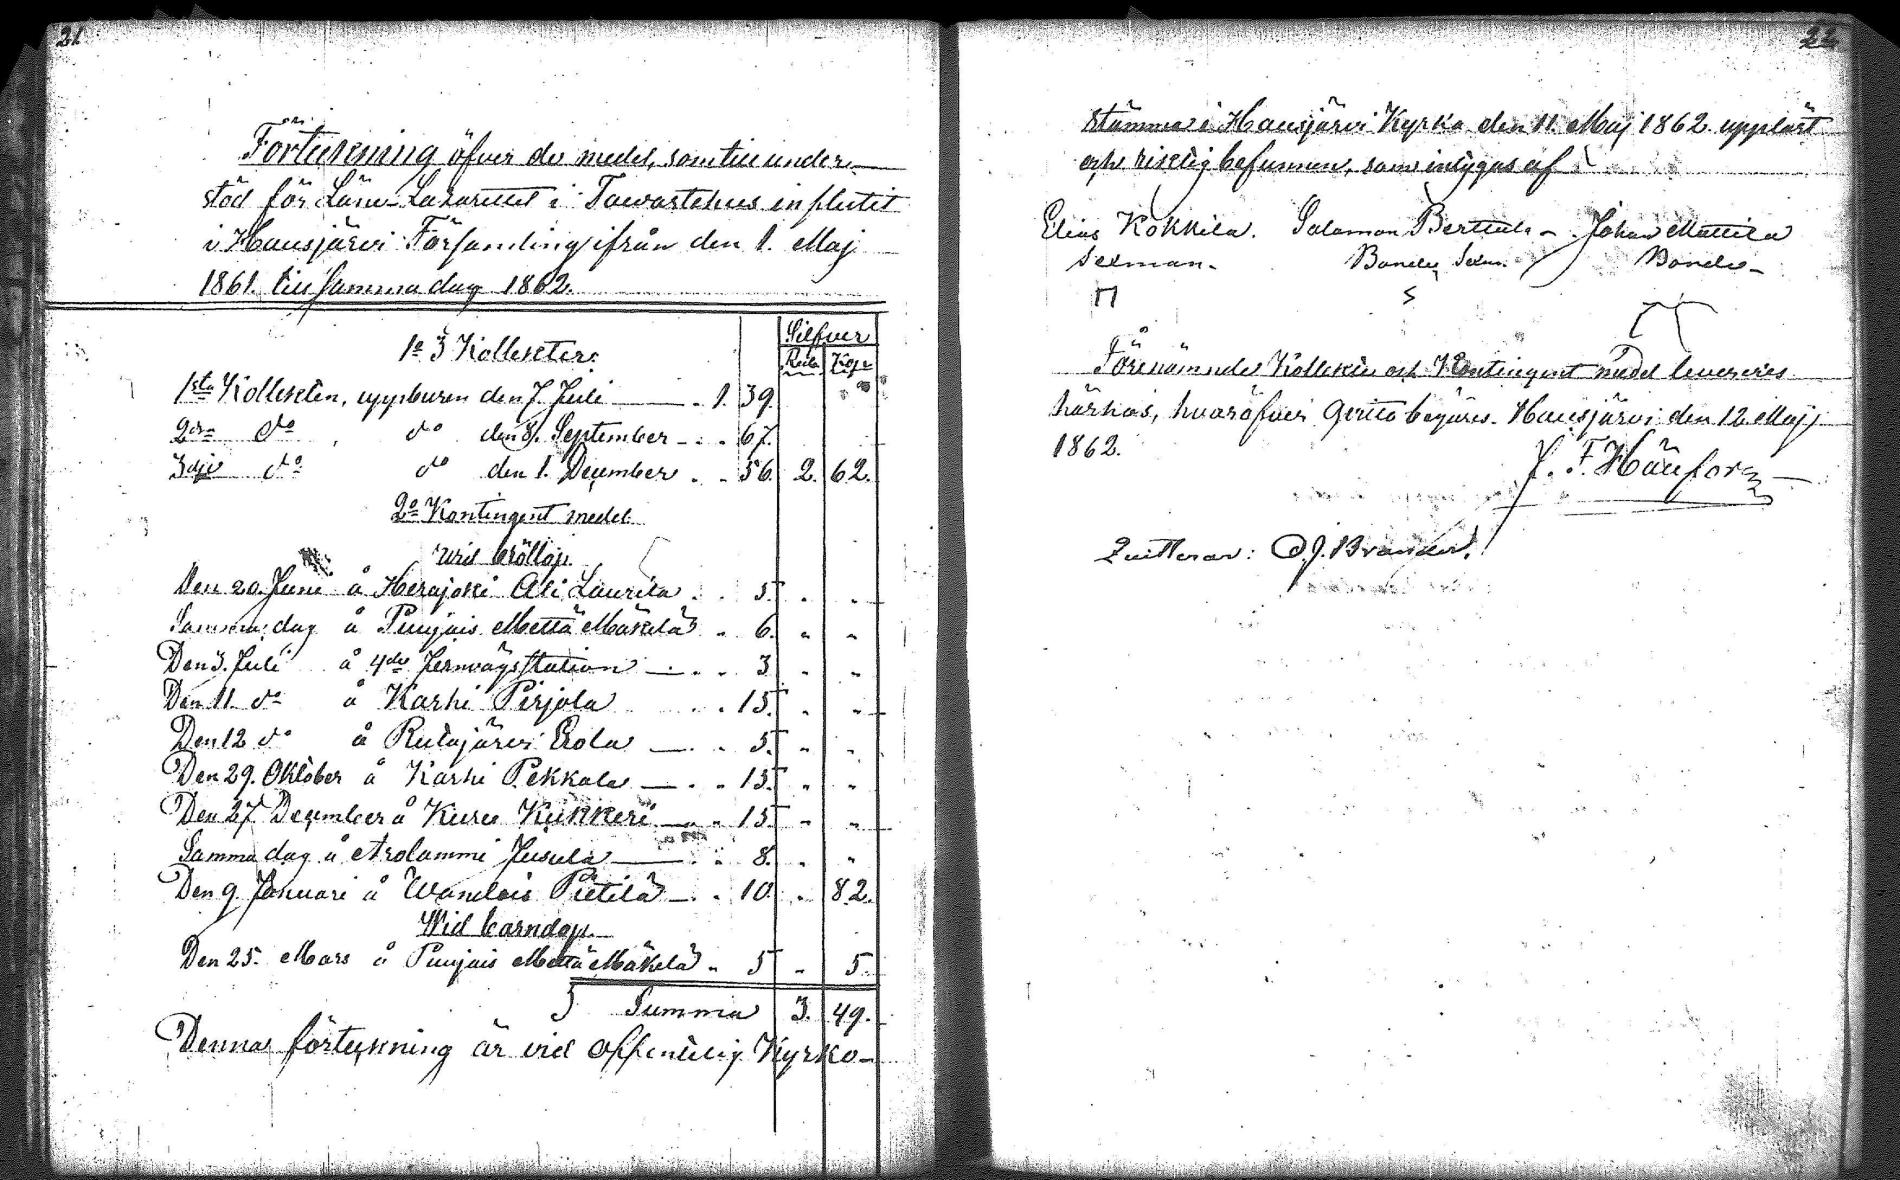 21
Förteckning öfver de medel, som till under-
stöd för Läns-Lazarettet i Tawastehus influtit
i Hausjärvi Församling ifrån den 1. Maj
1861. till samma dag 1862.
Silfver
Rub. Kop.
1o 3 Kollekter:
1sta Kollekten, uppburen den 7. Juli — . 1. 39.
2dra do do den 8. September - . . 67.
3dje do do den 1. December . . 56. 2. 62.
2o Kontingent medel
wid bröllop
Den 20. Juni å Herajoki Ali Laurila . . 5. . .
Samma dag å Puujais Mettä Mäkelä . 6. " "
Den 3. Juli å 4de Jernvägsstation — . . 3 . "
Den 11. do å Karhi Pirjola . . 15. . "
Den 12 do å Rutajärvi Erola — . . 5. " .
Den 29. Oktober å Karhi Pekkala — . . 15. " "
Den 27. December å Kuru Kukkeri — . 15. " "
Samma dag å Arolammi Jusula — . " 8. . "
Den 9. Januari å Wantais Pietilä — . . 10. . 82.
Wid barndop.
Den 25. Mars å Puujais Mettä Mäkelä " 5 " 5.
Summa 3. 49.
Denna förteckning är vid offentlig Kyrko-
22
stämma i Hausjärvi Kyrka den 11. Maj 1862. uppläst
och riktig befunnen, som intygas af
Elias Kokkila. Salomon Berttula - Johan Mattila
Sexman. Bonde, Sexm. Bonde -
Förenämnde Kollekt och Kontingent medel levereres
härhos, hvaröfver qvitto begäres. Hausjärvi den 12. Maj
1862.
J. F. Hänfors
Quitterar: O. J. Brander.